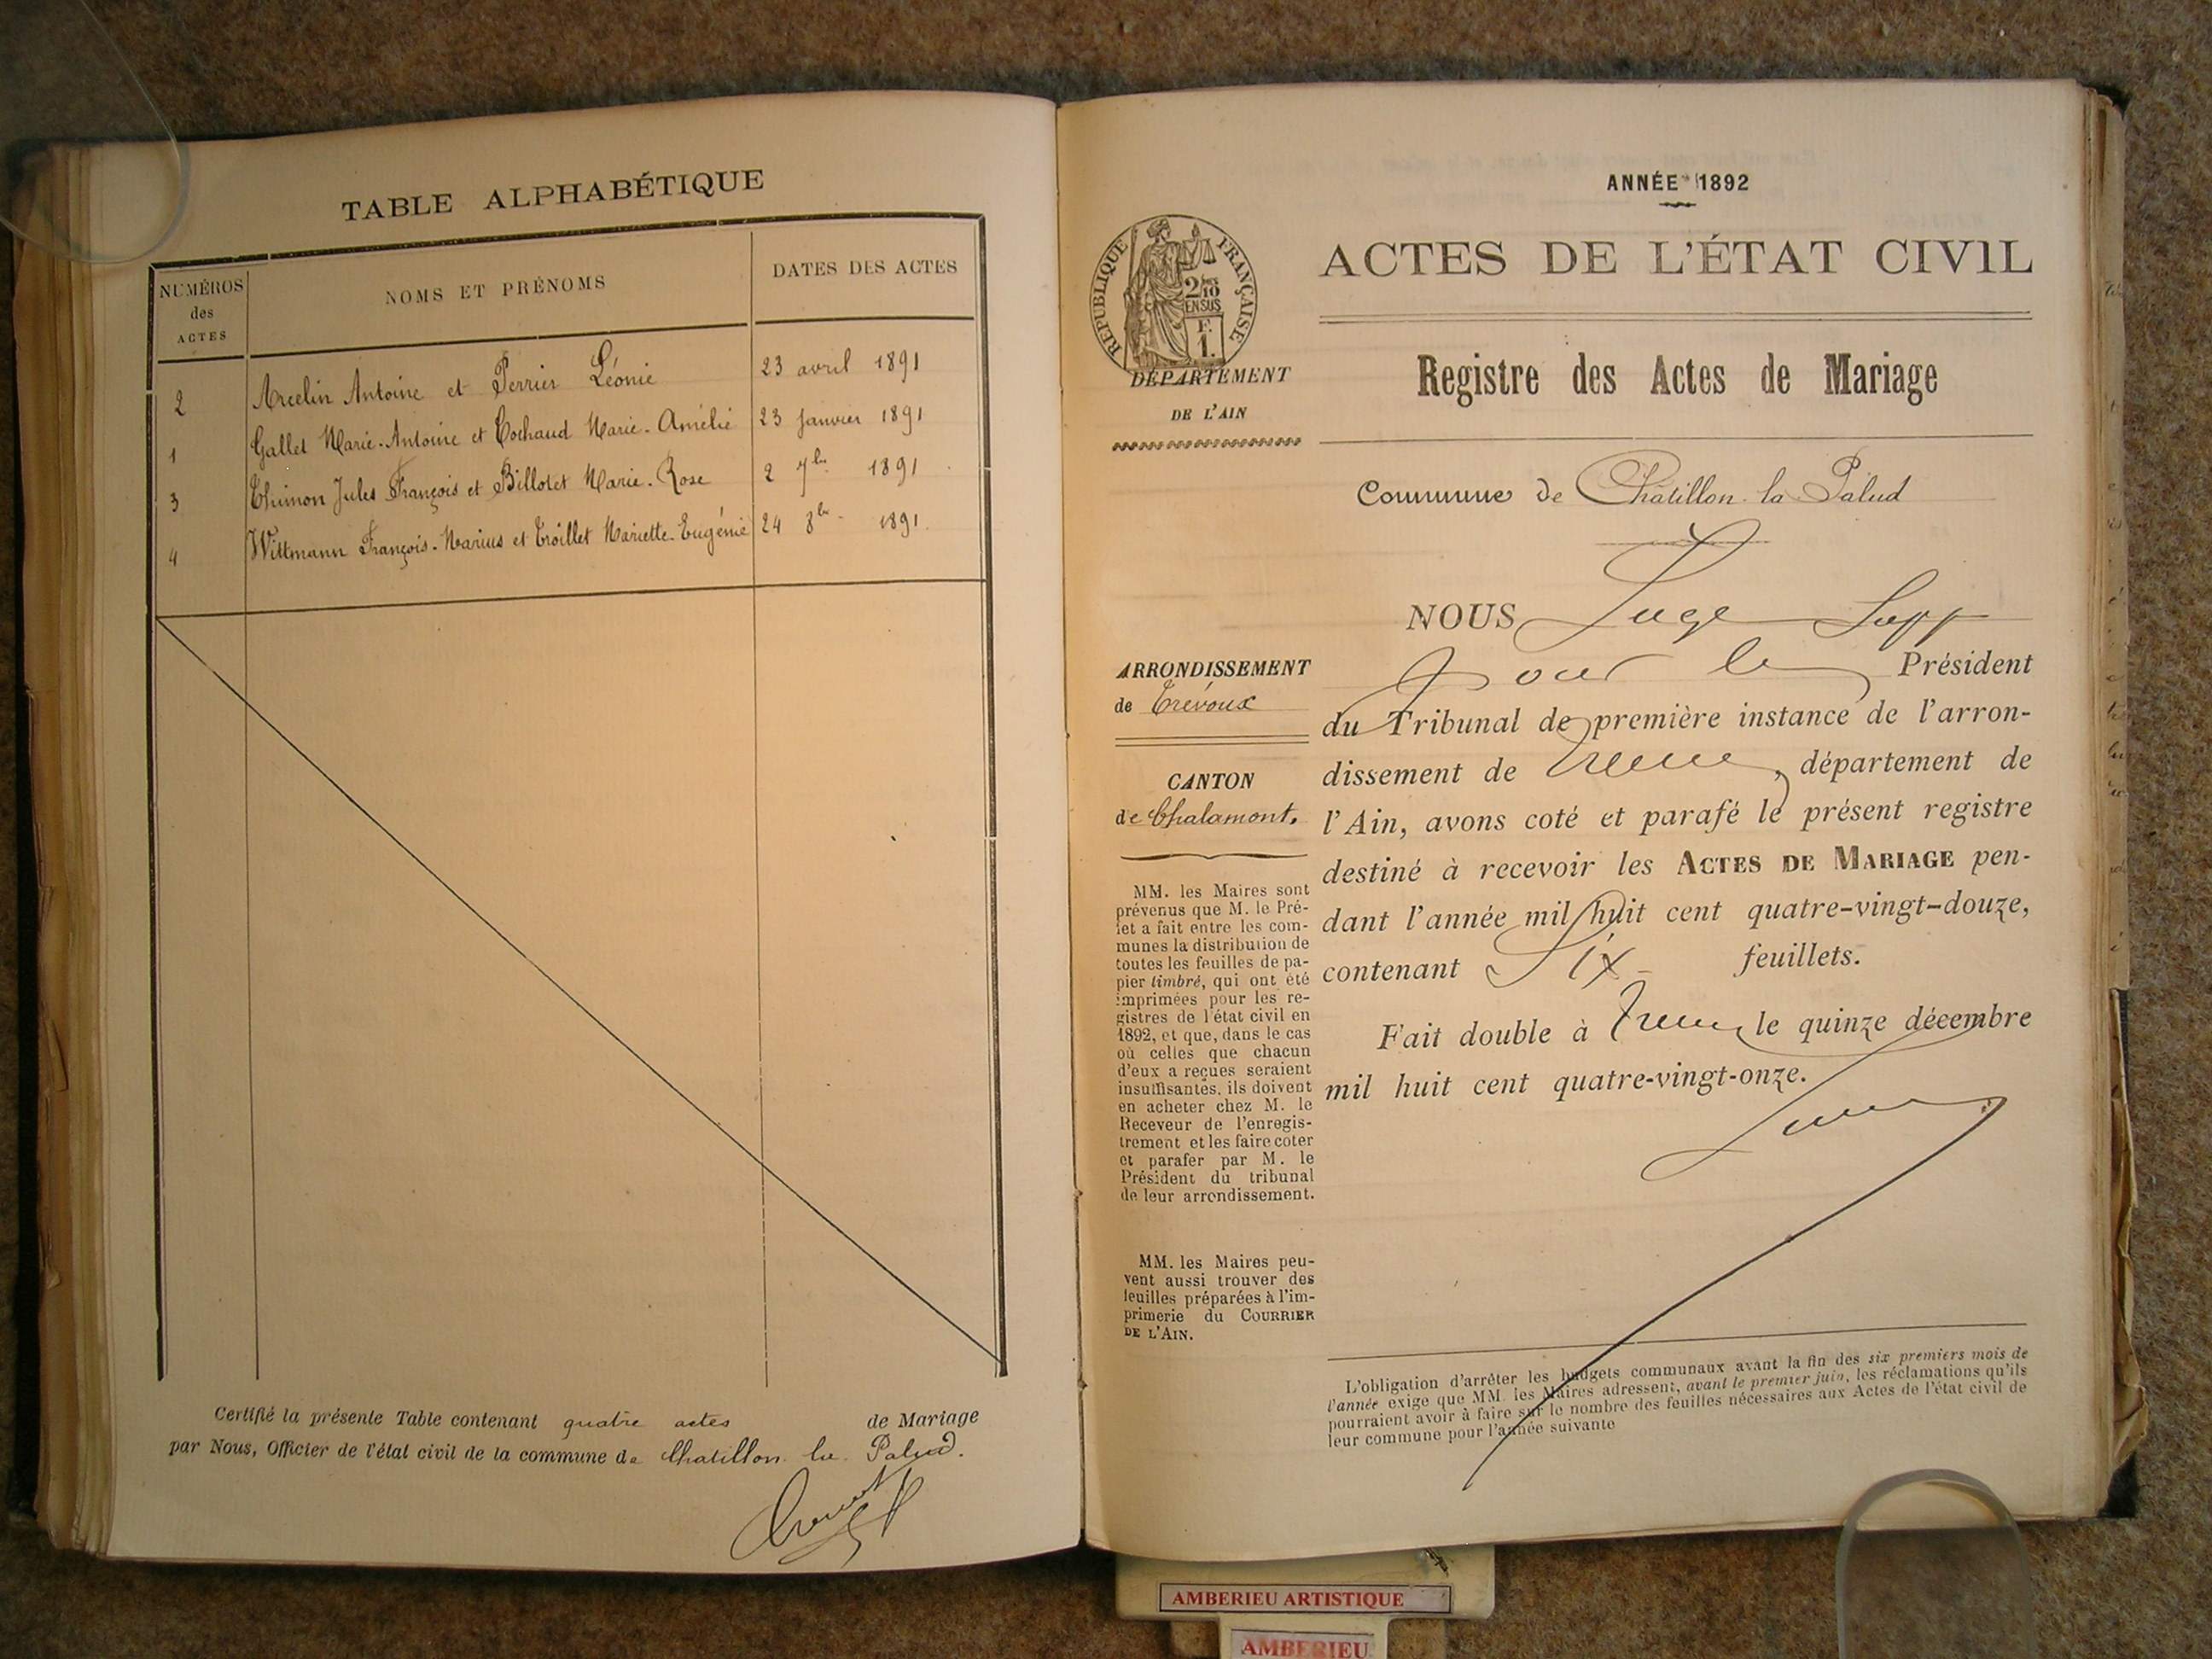 TABLE ALPHABÉTIQUE
NUMÉROS
des
ACTES
NOMS ET PRÉNOMS
DATES DES ACTES
2 Arcelin Antoine et Perrier Léonie 23 avril 1891
1 Gallet Marie-Antoine et Cochaud Marie-Amélie 23 Janvier 1891
3 Thimon Jules François et Billotet Marie-Rose 2 7bre 1891
4 Wittmann François-Marius et Troillet Mariette-Eugénie 24 8bre 1891.
Certifié la présente Table contenant quatre actes de Mariage
par Nous, Officier de l'état civil de la commune de Chatillon la Palud.
ANNÉE 1892
RÉPUBLIQUE FRANÇAISE
2/10
EN SUS
F.
1.
DÉPARTEMENT
DE L'AIN
ACTES DE L'ÉTAT CIVIL
Registre des Actes de Mariage
Commune de Châtillon-la-Palud
NOUS Juge Supp
pour le Président
du Tribunal de première instance de l'arron-
dissement de , département de
l'Ain, avons coté et parafé le présent registre
destiné à recevoir les ACTES DE MARIAGE pen-
dant l'année mil huit cent quatre-vingt-douze,
contenant Six feuillets.
Fait double à le quinze décembre
mil huit cent quatre-vingt-onze.
ARRONDISSEMENT
de Trévoux
CANTON
de Chalamont.
MM. les Maires sont
prévenus que M. le Pré-
fet a fait entre les com-
munes la distribution de
toutes les feuilles de pa-
pier timbré, qui ont été
imprimées pour les re-
gistres de l'état civil en
1892, et que, dans le cas
où celles que chacun
d'eux a reçues seraient
insuffisantes, ils doivent
en acheter chez M. le
Receveur de l'enregis-
trement et les faire coter
et parafer par M. le
Président du tribunal
de leur arrondissement.
MM. les Maires peu-
vent aussi trouver des
feuilles préparées à l'im-
primerie du COURRIER
DE L'AIN.
L'obligation d'arrêter les budgets communaux avant la fin des six premiers mois de
l'année exige que MM. les Maires adressent, avant le premier juin, les réclamations qu'ils
pourraient avoir à faire sur le nombre des feuilles nécessaires aux Actes de l'état civil de
leur commune pour l'année suivante
AMBERIEU ARTISTIQUE
AMBERIEU